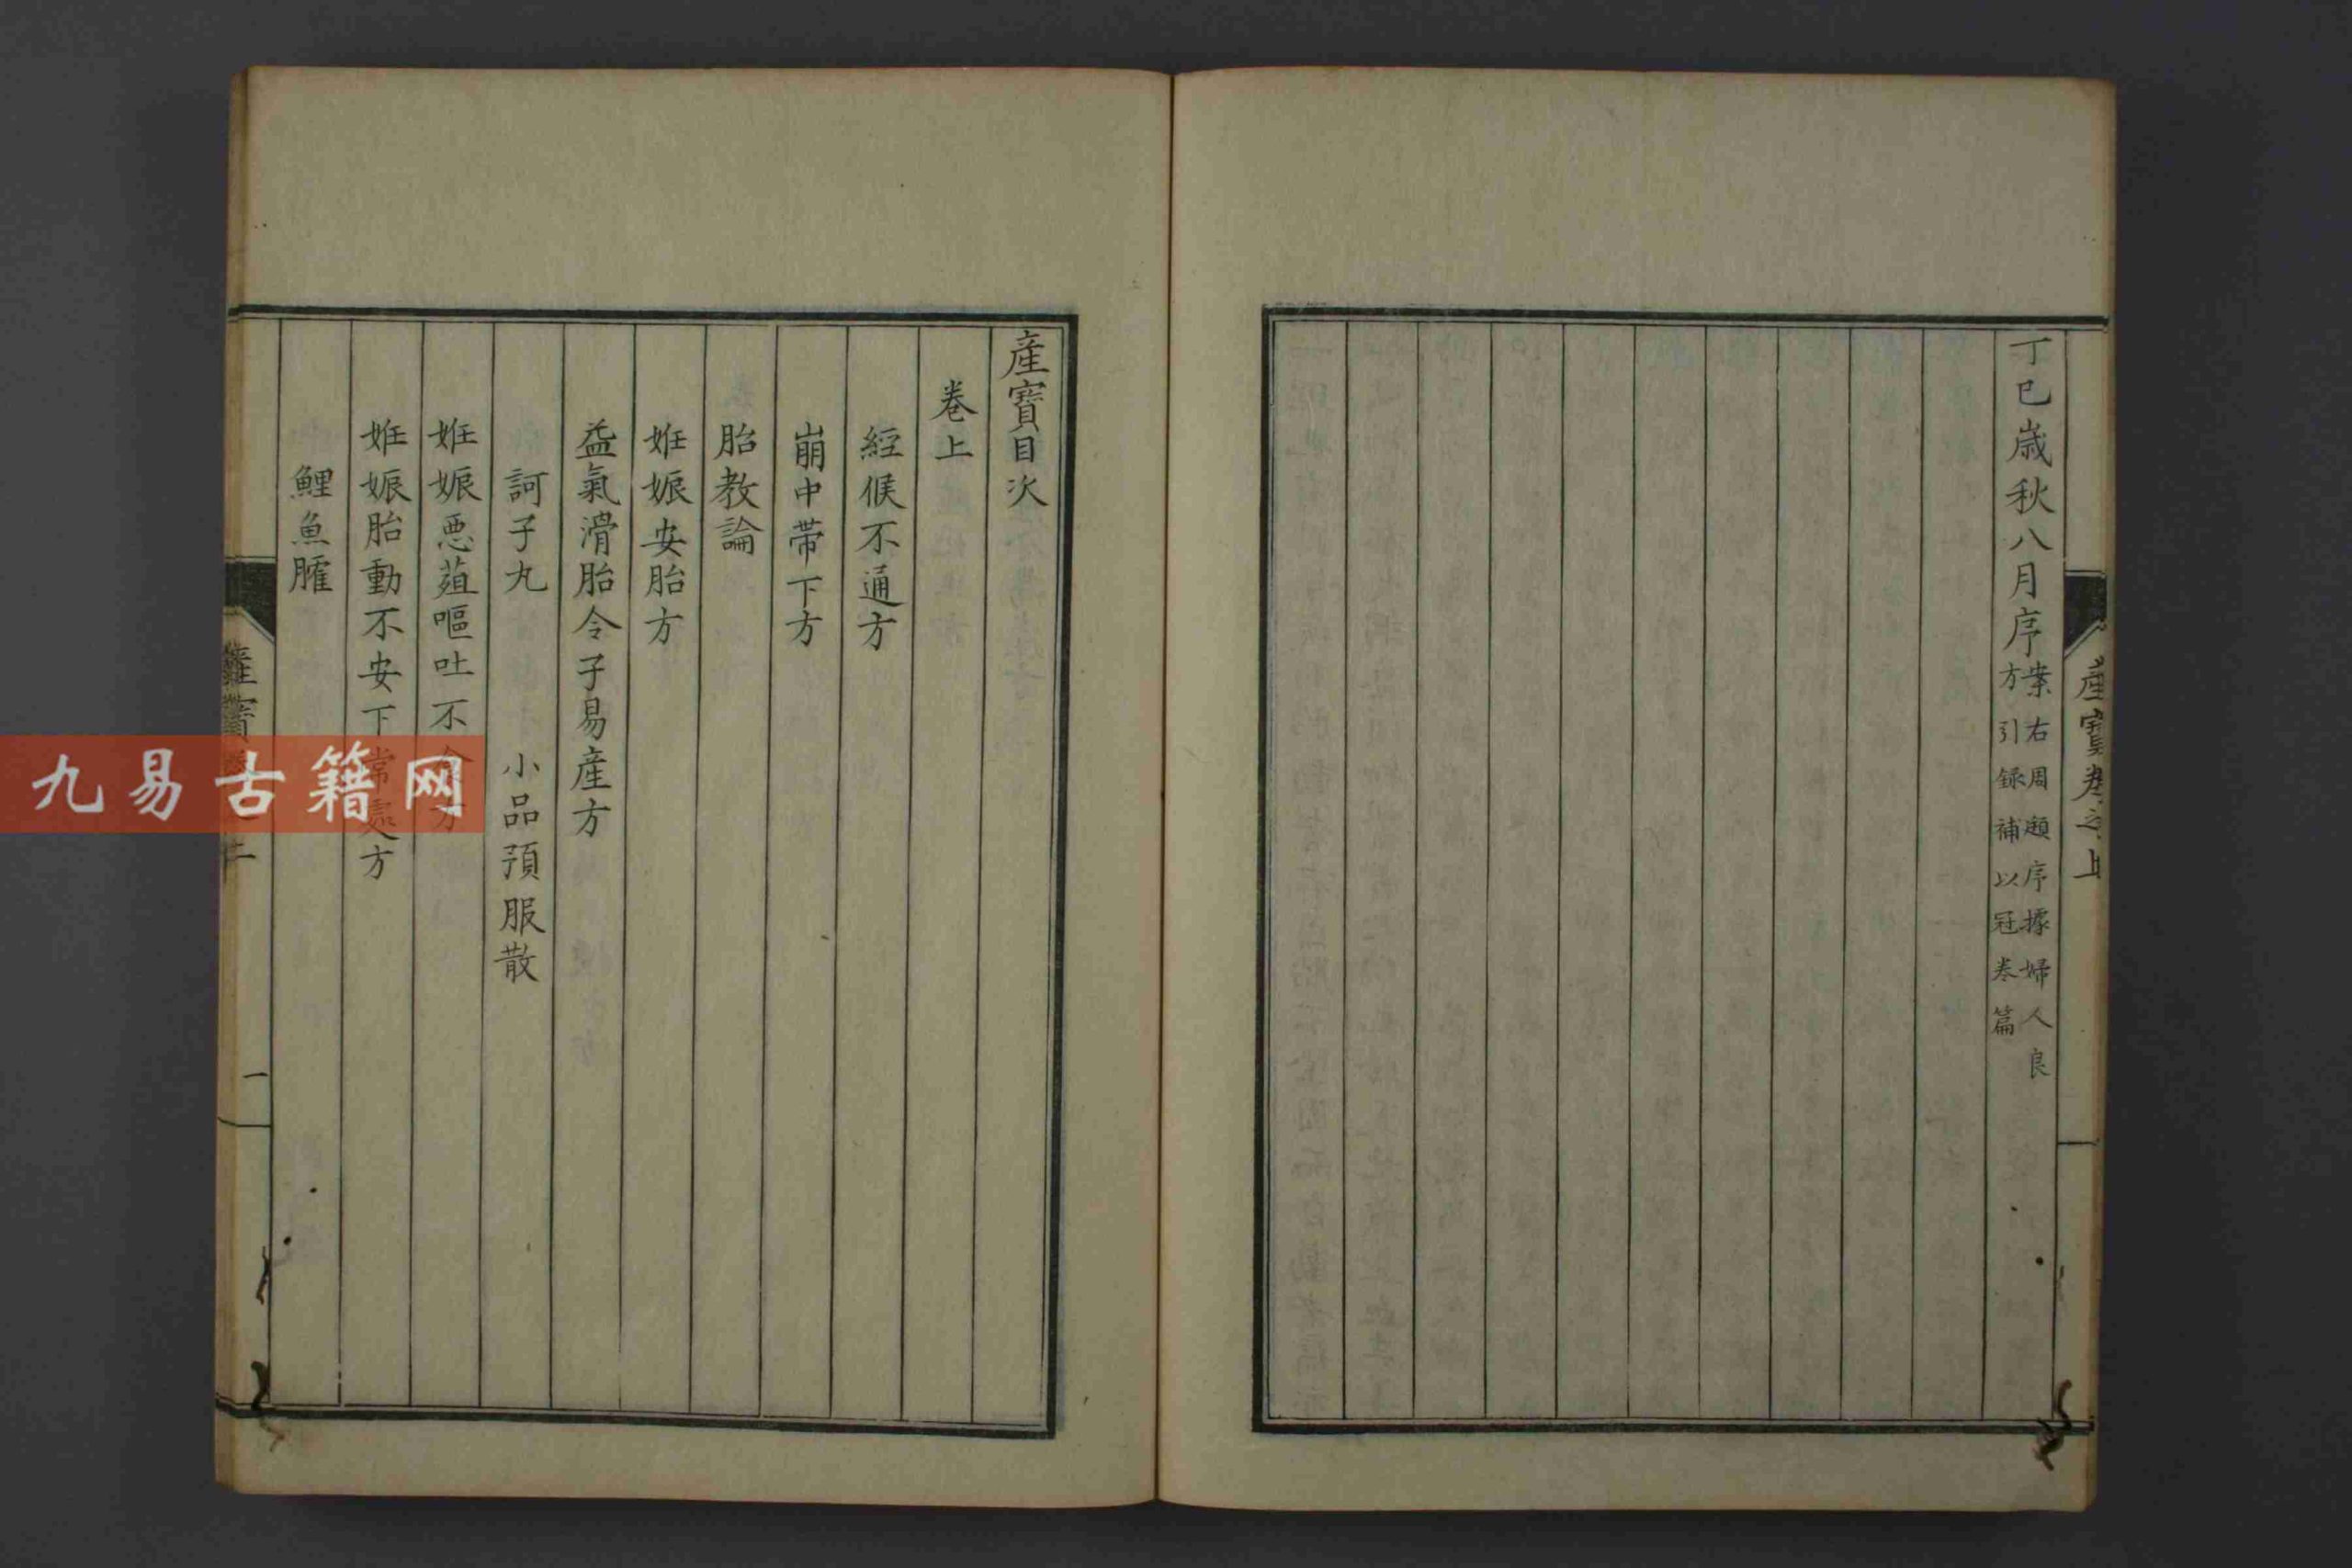 丁巳歳秋八月序
案右周頲序據婦人良
方引録補以冠巻篇
産寶巻之上
産寶目次
巻上
經候不通方
崩中帯下方
胎教論
姙娠安胎方
益氣滑胎令子易産方
訶子丸 小品預服散
姙娠悪葅嘔吐不食方
姙娠胎動不安下常處方
鯉魚臛
一
九易古籍网